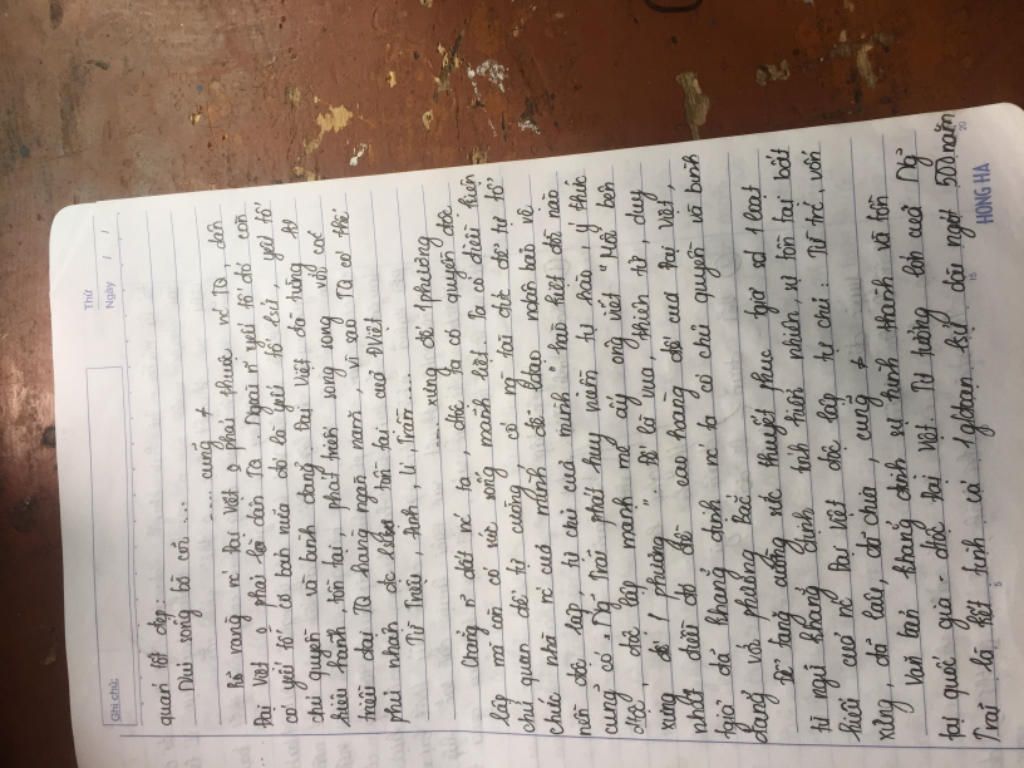 Thứ
Ngày / /
Ghi chú:
quán tốt đẹp:
Núi sông bờ cõi ...
.... cũng ≠
Rõ ràng nc Đại Việt o phải phươc nc TQ, dân
Đại Việt o phải là dân TQ. Ngoài n~ yếu tố đó còn
có yếu tố cơ bản nữa đó là yếu tố lsử, yếu tố
chủ quyền và bình đẳng. Đại Việt đã từng
hiên hành, tồn tại, phát triển song song với các
triều đại TQ hàng ngàn năm, vì sao TQ có thể
phủ nhận đc sự tồn tại của ĐViệt
Từ Triệu, Đinh, Lí, Trần....
.... xưng đế 1 phương
Chẳng n~ đất nc ta, dtộc ta có quyền độc
lập mà còn có sức sống mãnh liệt. Ta có điều kiện
chủ quan để tự cường, có ng tài đức để tự tổ
chức nhà nc của mình, để lđạo ndân bảo vệ
nền độc lập, tự chủ của mình "hào kiệt đời nào
cũng có". Ng Trãi phát huy niềm tự hào, ý thức
dtộc, độc lập mạnh mẽ ấy ông viết "Mỗi bên
xưng đế 1 phương". Đế là vua, thiên tử, duy
nhất dưới đó để cao hoàng đế của Đại Việt,
tgiả đã khẳng định nc ta có chủ quyền và bình
đẳng với phương Bắc
Để tăng cường sức thuyết phục tgiả sd 1 loạt
từ ngữ khẳng định tính hiển nhiên, sự tồn tại bất
hiếu của nc Đại Việt độc lập tự chủ: Từ trc, vốn
xưng, đã lâu, đã chia, cũng ≠
Văn bản khẳng định sự hình thành và tồn
tại quốc gia - dtộc Đại Việt. Tư tưởng lớn của Ng
Trãi là kết tinh cả 1 gđoạn lsử dài ngót 500 năm
5 15 20
HONG HA